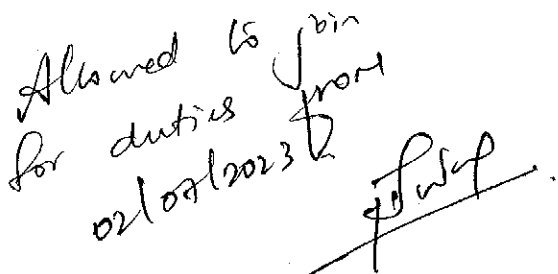 Allowed to join
for duties from
02/07/2023